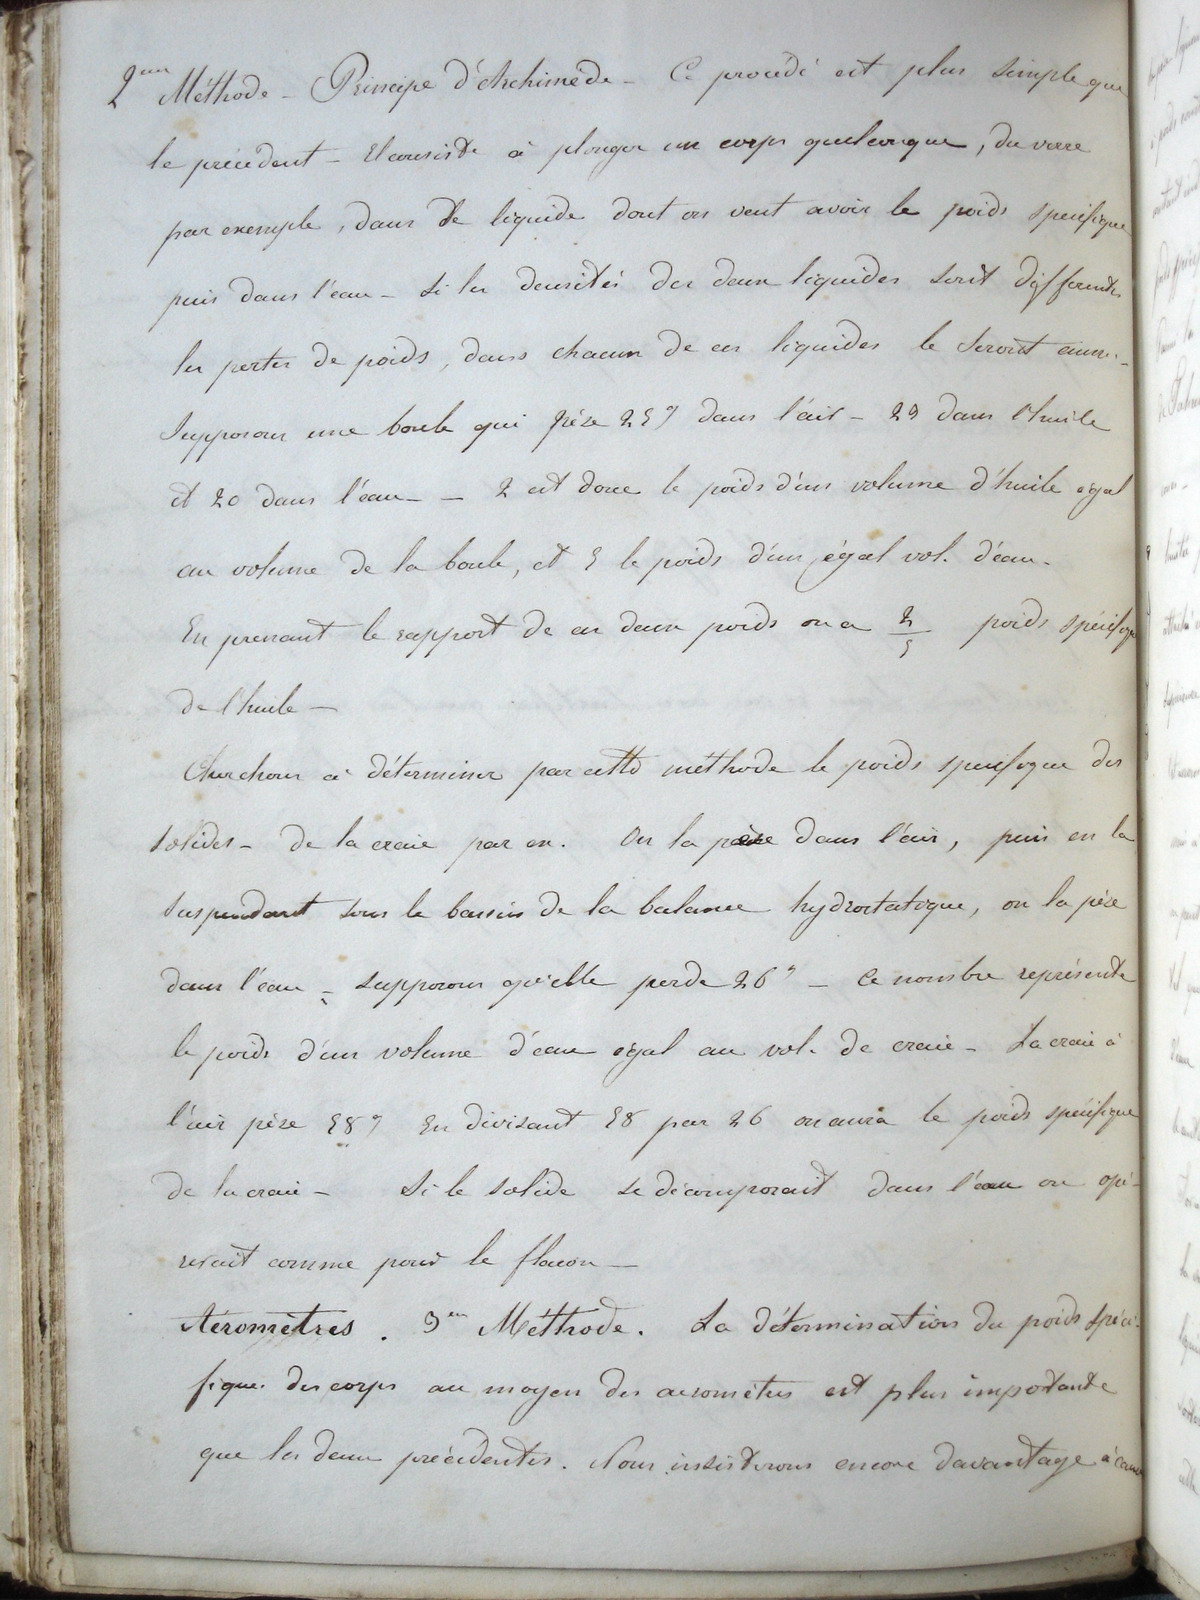 2eme Méthode – Principe d'Archimède – Ce procédé est plus simple que
le précédent – Il consiste à plonger un corps quelconque, du verre
par exemple, dans le liquide dont on veut avoir le poids specifique
puis dans l'eau – Si les densités des deux liquides sont differentes
les pertes de poids, dans chacun de ces liquides le seront aussi.
Supposons une boule qui pèse 25g dans l'air – 23 dans l'huile
et 20 dans l'eau – – 2 est donc le poids d'un volume d'huile égal
au volume de la boule, et 5 le poids d'un égal vol. d'eau.
En prenant le rapport de ces deux poids on a 2/5 poids spécifique
de l'huile –
Cherchons à déterminer par cette méthode le poids specifique des
solides – de la craie par ex. On la pèse dans l'air, puis en la
suspendant sous le bassin de la balance hydrostatique, on la pèse
dans l'eau – supposons qu'elle perde 26g – Ce nombre représente
le poids d'un volume d'eau égal au vol. de craie – La craie à
l'air pèse 58g En divisant 58 par 26 on aura le poids spécifique
de la craie – Si le solide se décomposait dans l'eau on opé-
rerait comme pour le flacon –
Aéromètres. 3em Méthode. La détermination du poids spéci-
fique des corps au moyen des aeromètres est plus importante
que les deux précédentes. Nous insisterons encore davantage à cause